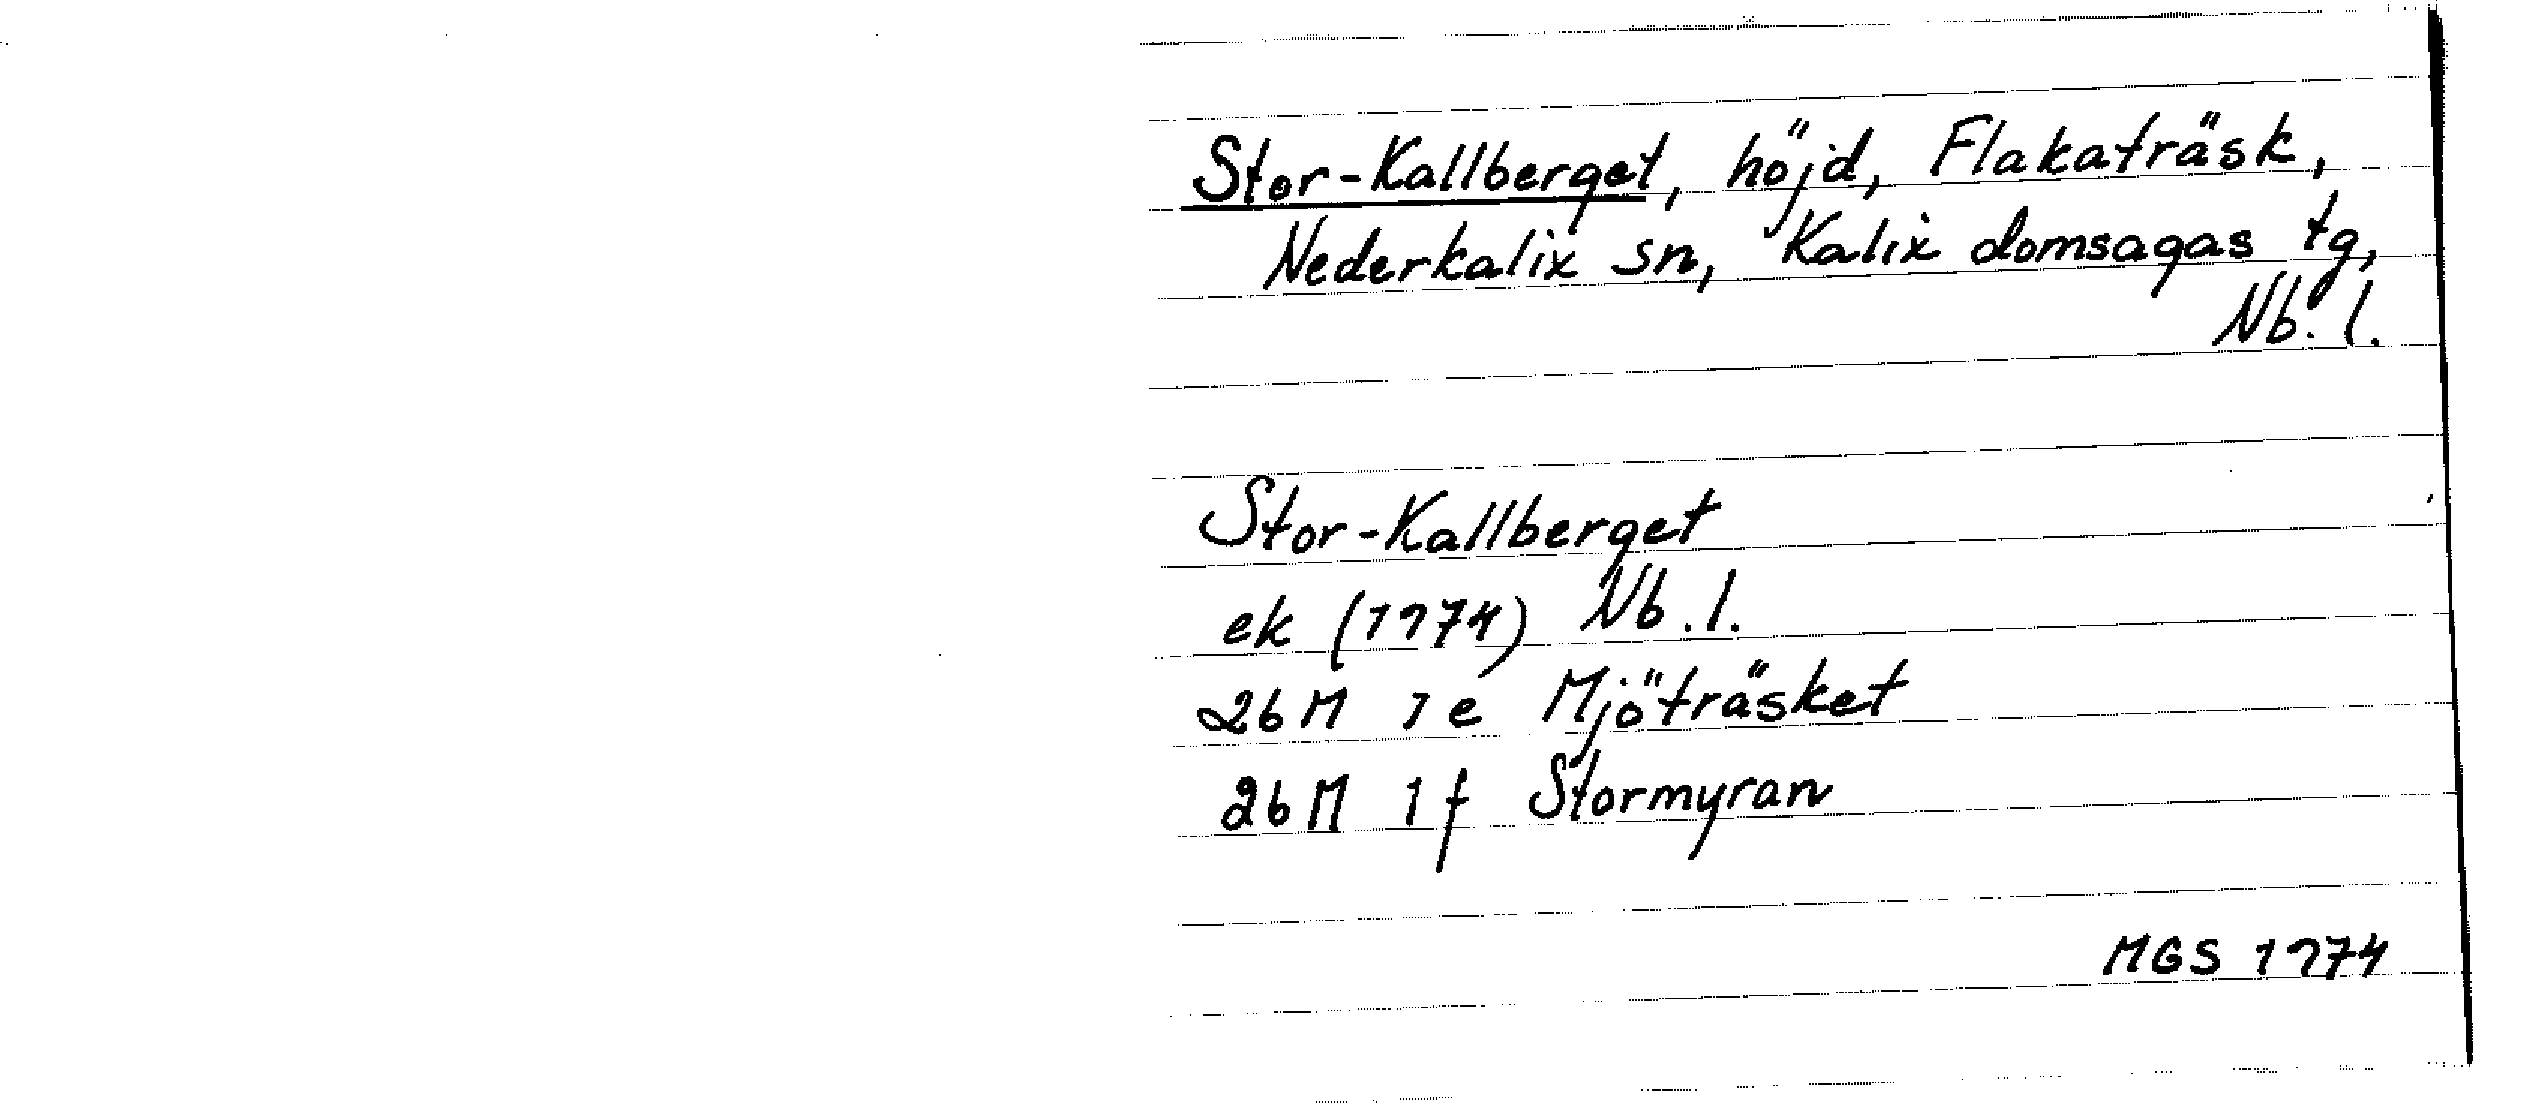 Stor-Kallberget, höjd, Flakaträsk,
Nederkalix sn, Kalix domsagas tg,
Nb. l.
Stor-Kallberget
ek (1974) Nb.l.
26M 1e Mjöträsket
26M 1f Stormyran
MGS 1974